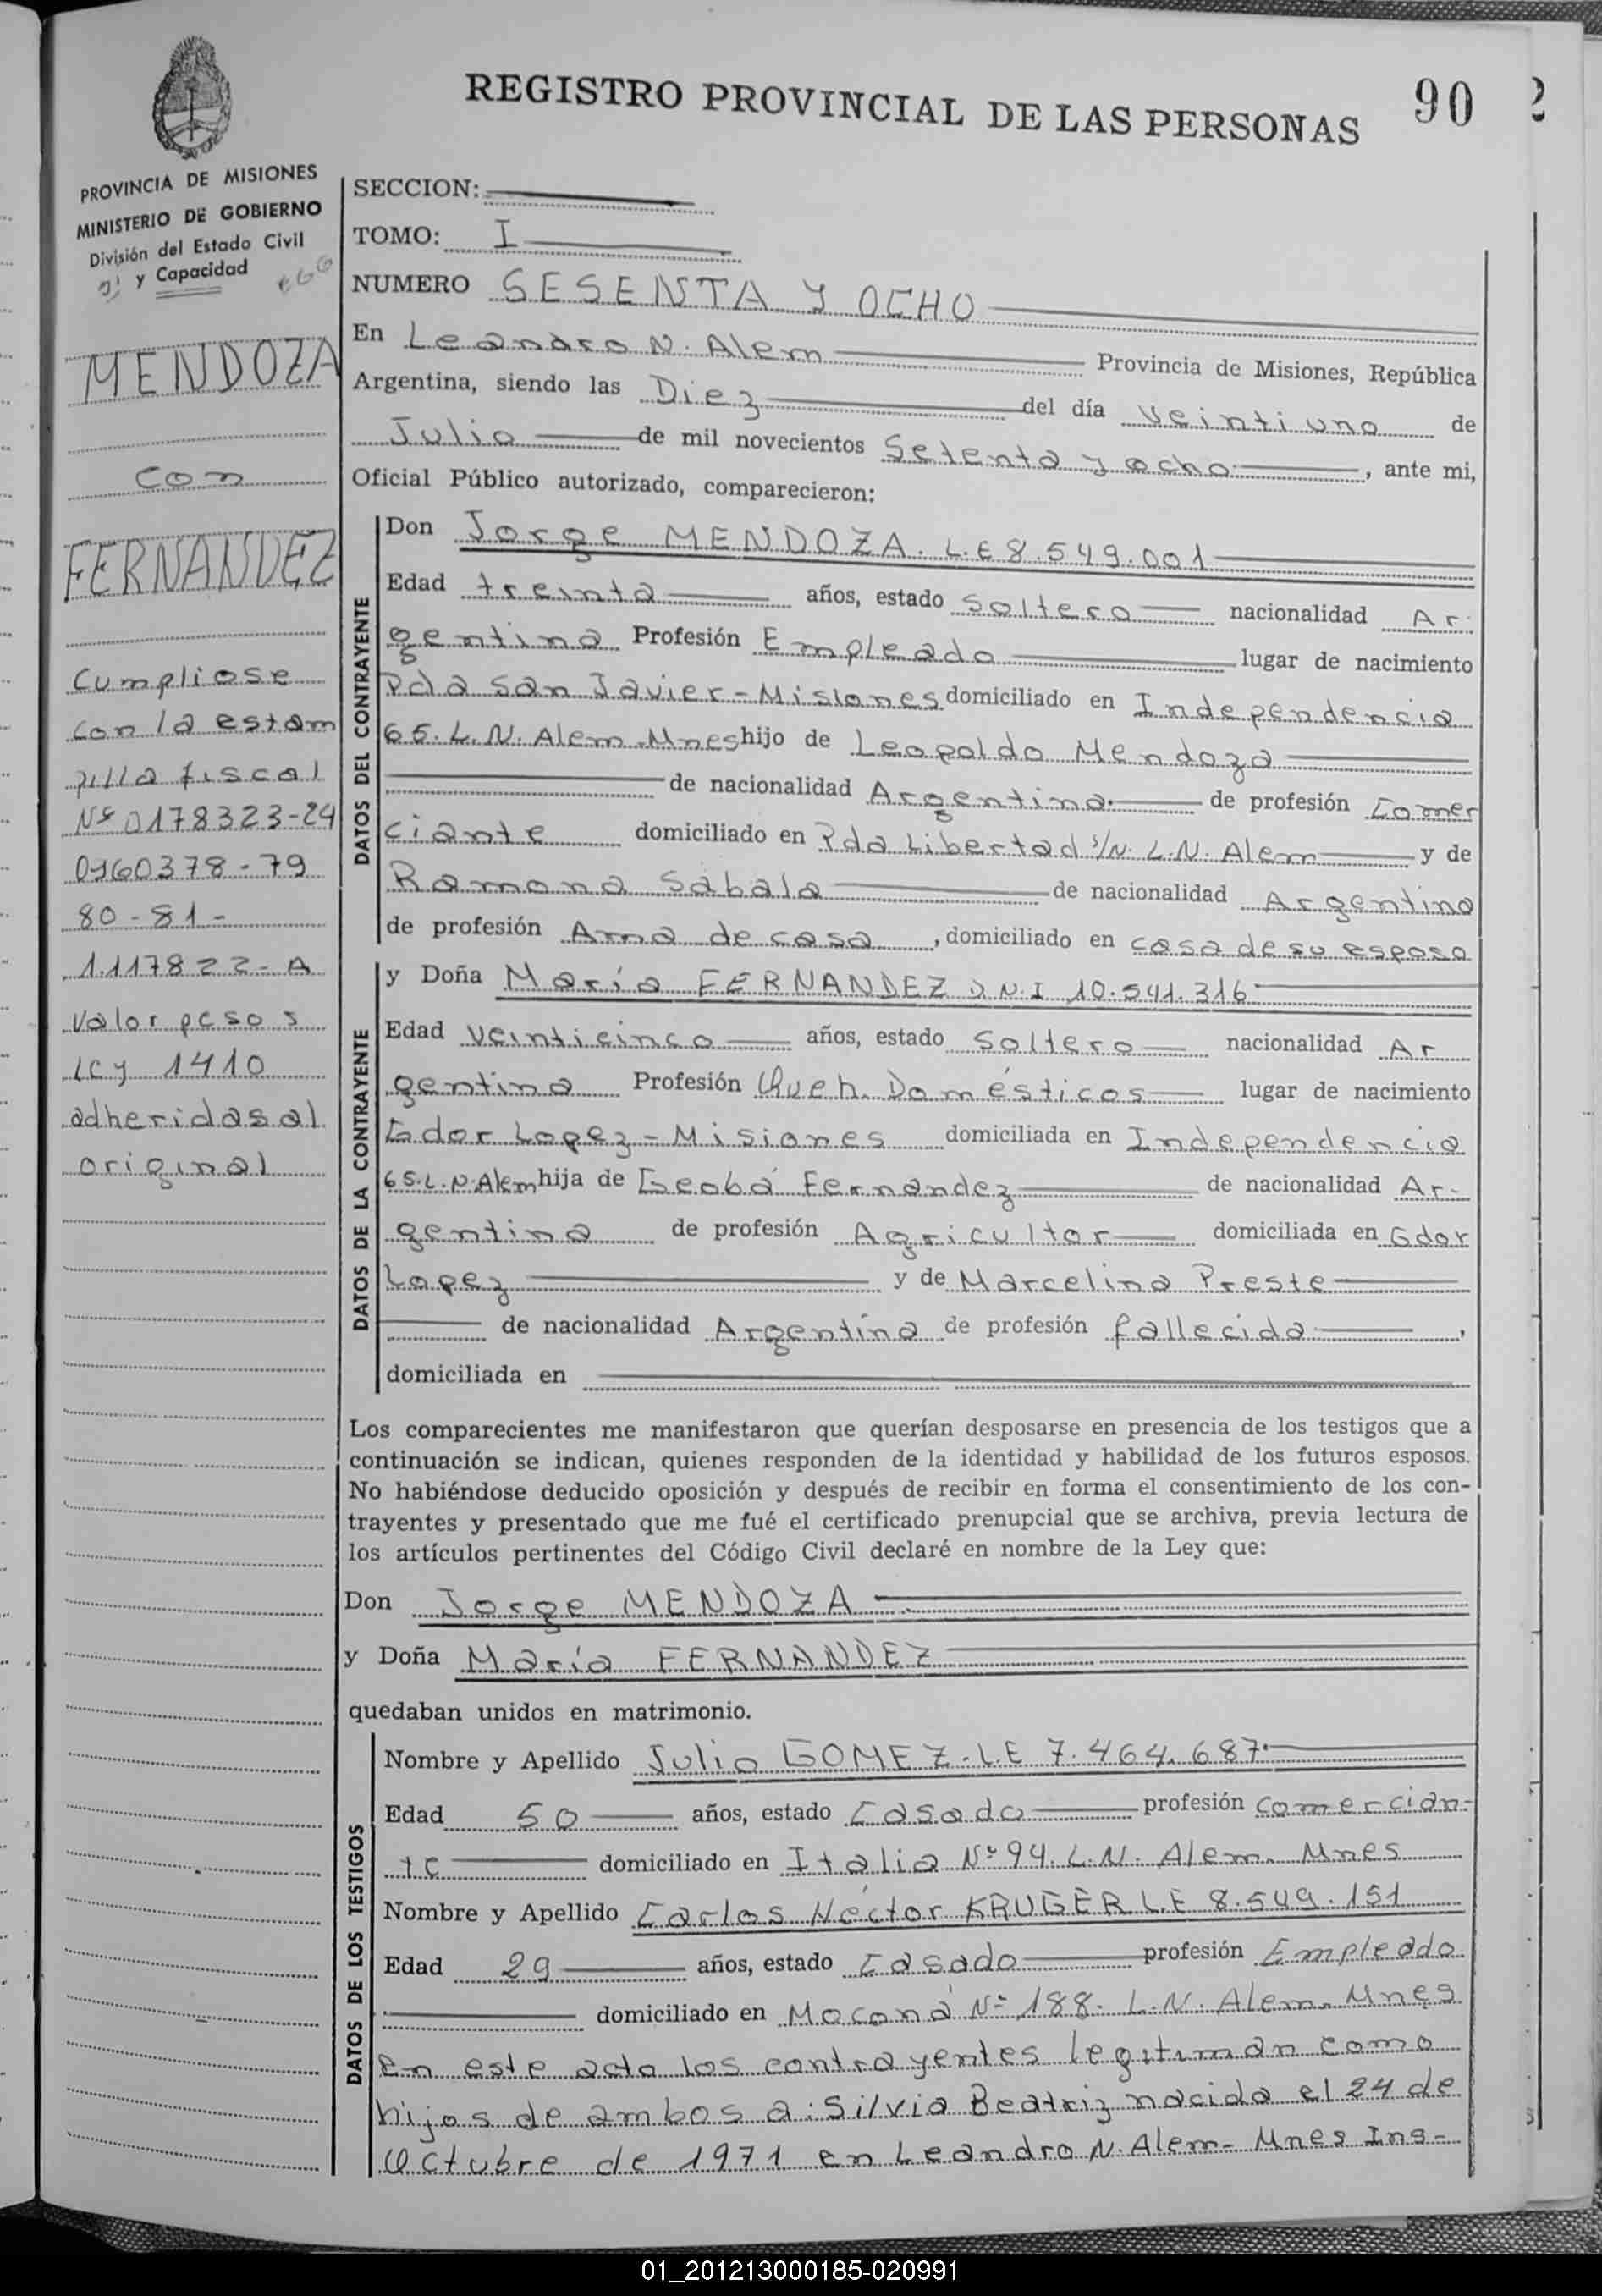 REGISTRO PROVINCIAL DE LAS PERSONAS
90
PROVINCIA DE MISIONES
MINISTERIO DE GOBIERNO
División del Estado Civil
y Capacidad
MENDOZA
con
FERNANDEZ
Cumpliose
con la estam
pilla fiscal
Nº 0178323-24
0160378-79
80-81-
1.117822-A
valor pesos
ley 1410
adheridas al
original
SECCION:
TOMO: I
NUMERO SESENTA Y OCHO
En Leandro N. Alem Provincia de Misiones, República
Argentina, siendo las Diez del día veintiuno de
Julio de mil novecientos Setenta y ocho, ante mi,
Oficial Público autorizado, comparecieron:
DATOS DEL CONTRAYENTE
Don Jorge MENDOZA. L.E 8.549.001
Edad treinta años, estado Soltero nacionalidad Ar
gentina Profesión Empleado lugar de nacimiento
Pda San Javier-Misiones domiciliado en Independencia
65. L.N. Alem-Mnes hijo de Leopoldo Mendoza
de nacionalidad Argentina de profesión Comer
ciante domiciliado en Pda Libertad S/N. L.N. Alem y de
Ramona Sabala de nacionalidad Argentina
de profesión Ama de casa, domiciliado en casa de su esposo
DATOS DE LA CONTRAYENTE
y Doña María FERNANDEZ D.N.I 10.541.316
Edad veinticinco años, estado Soltero nacionalidad Ar
gentina Profesión Queh. Domésticos lugar de nacimiento
Gdor Lopez-Misiones domiciliada en Independencia
65. L.N. Alem hija de Geobá Fernandez de nacionalidad Ar-
gentina de profesión Agricultor domiciliada en Gdor
Lopez y de Marcelina Preste
de nacionalidad Argentina de profesión fallecida,
domiciliada en
Los comparecientes me manifestaron que querían desposarse en presencia de los testigos que a
continuación se indican, quienes responden de la identidad y habilidad de los futuros esposos.
No habiéndose deducido oposición y después de recibir en forma el consentimiento de los con-
trayentes y presentado que me fué el certificado prenupcial que se archiva, previa lectura de
los artículos pertinentes del Código Civil declaré en nombre de la Ley que:
Don Jorge MENDOZA
y Doña María FERNANDEZ
quedaban unidos en matrimonio.
DATOS DE LOS TESTIGOS
Nombre y Apellido Julio GOMEZ. L.E 7.464.687
Edad 50 años, estado Casado profesión Comercian-
te domiciliado en Italia Nº 94. L.N. Alem. Mnes
Nombre y Apellido Carlos Héctor KRUGER L.E 8.549.151
Edad 29 años, estado Casado profesión Empleado
domiciliado en Moconá Nº 188. L.N. Alem. Mnes
En este acto los contrayentes legitiman como
hijos de ambos a: Silvia Beatriz nacida el 24 de
Octubre de 1971 en Leandro N. Alem- Mnes Ins-
01_201213000185-020991